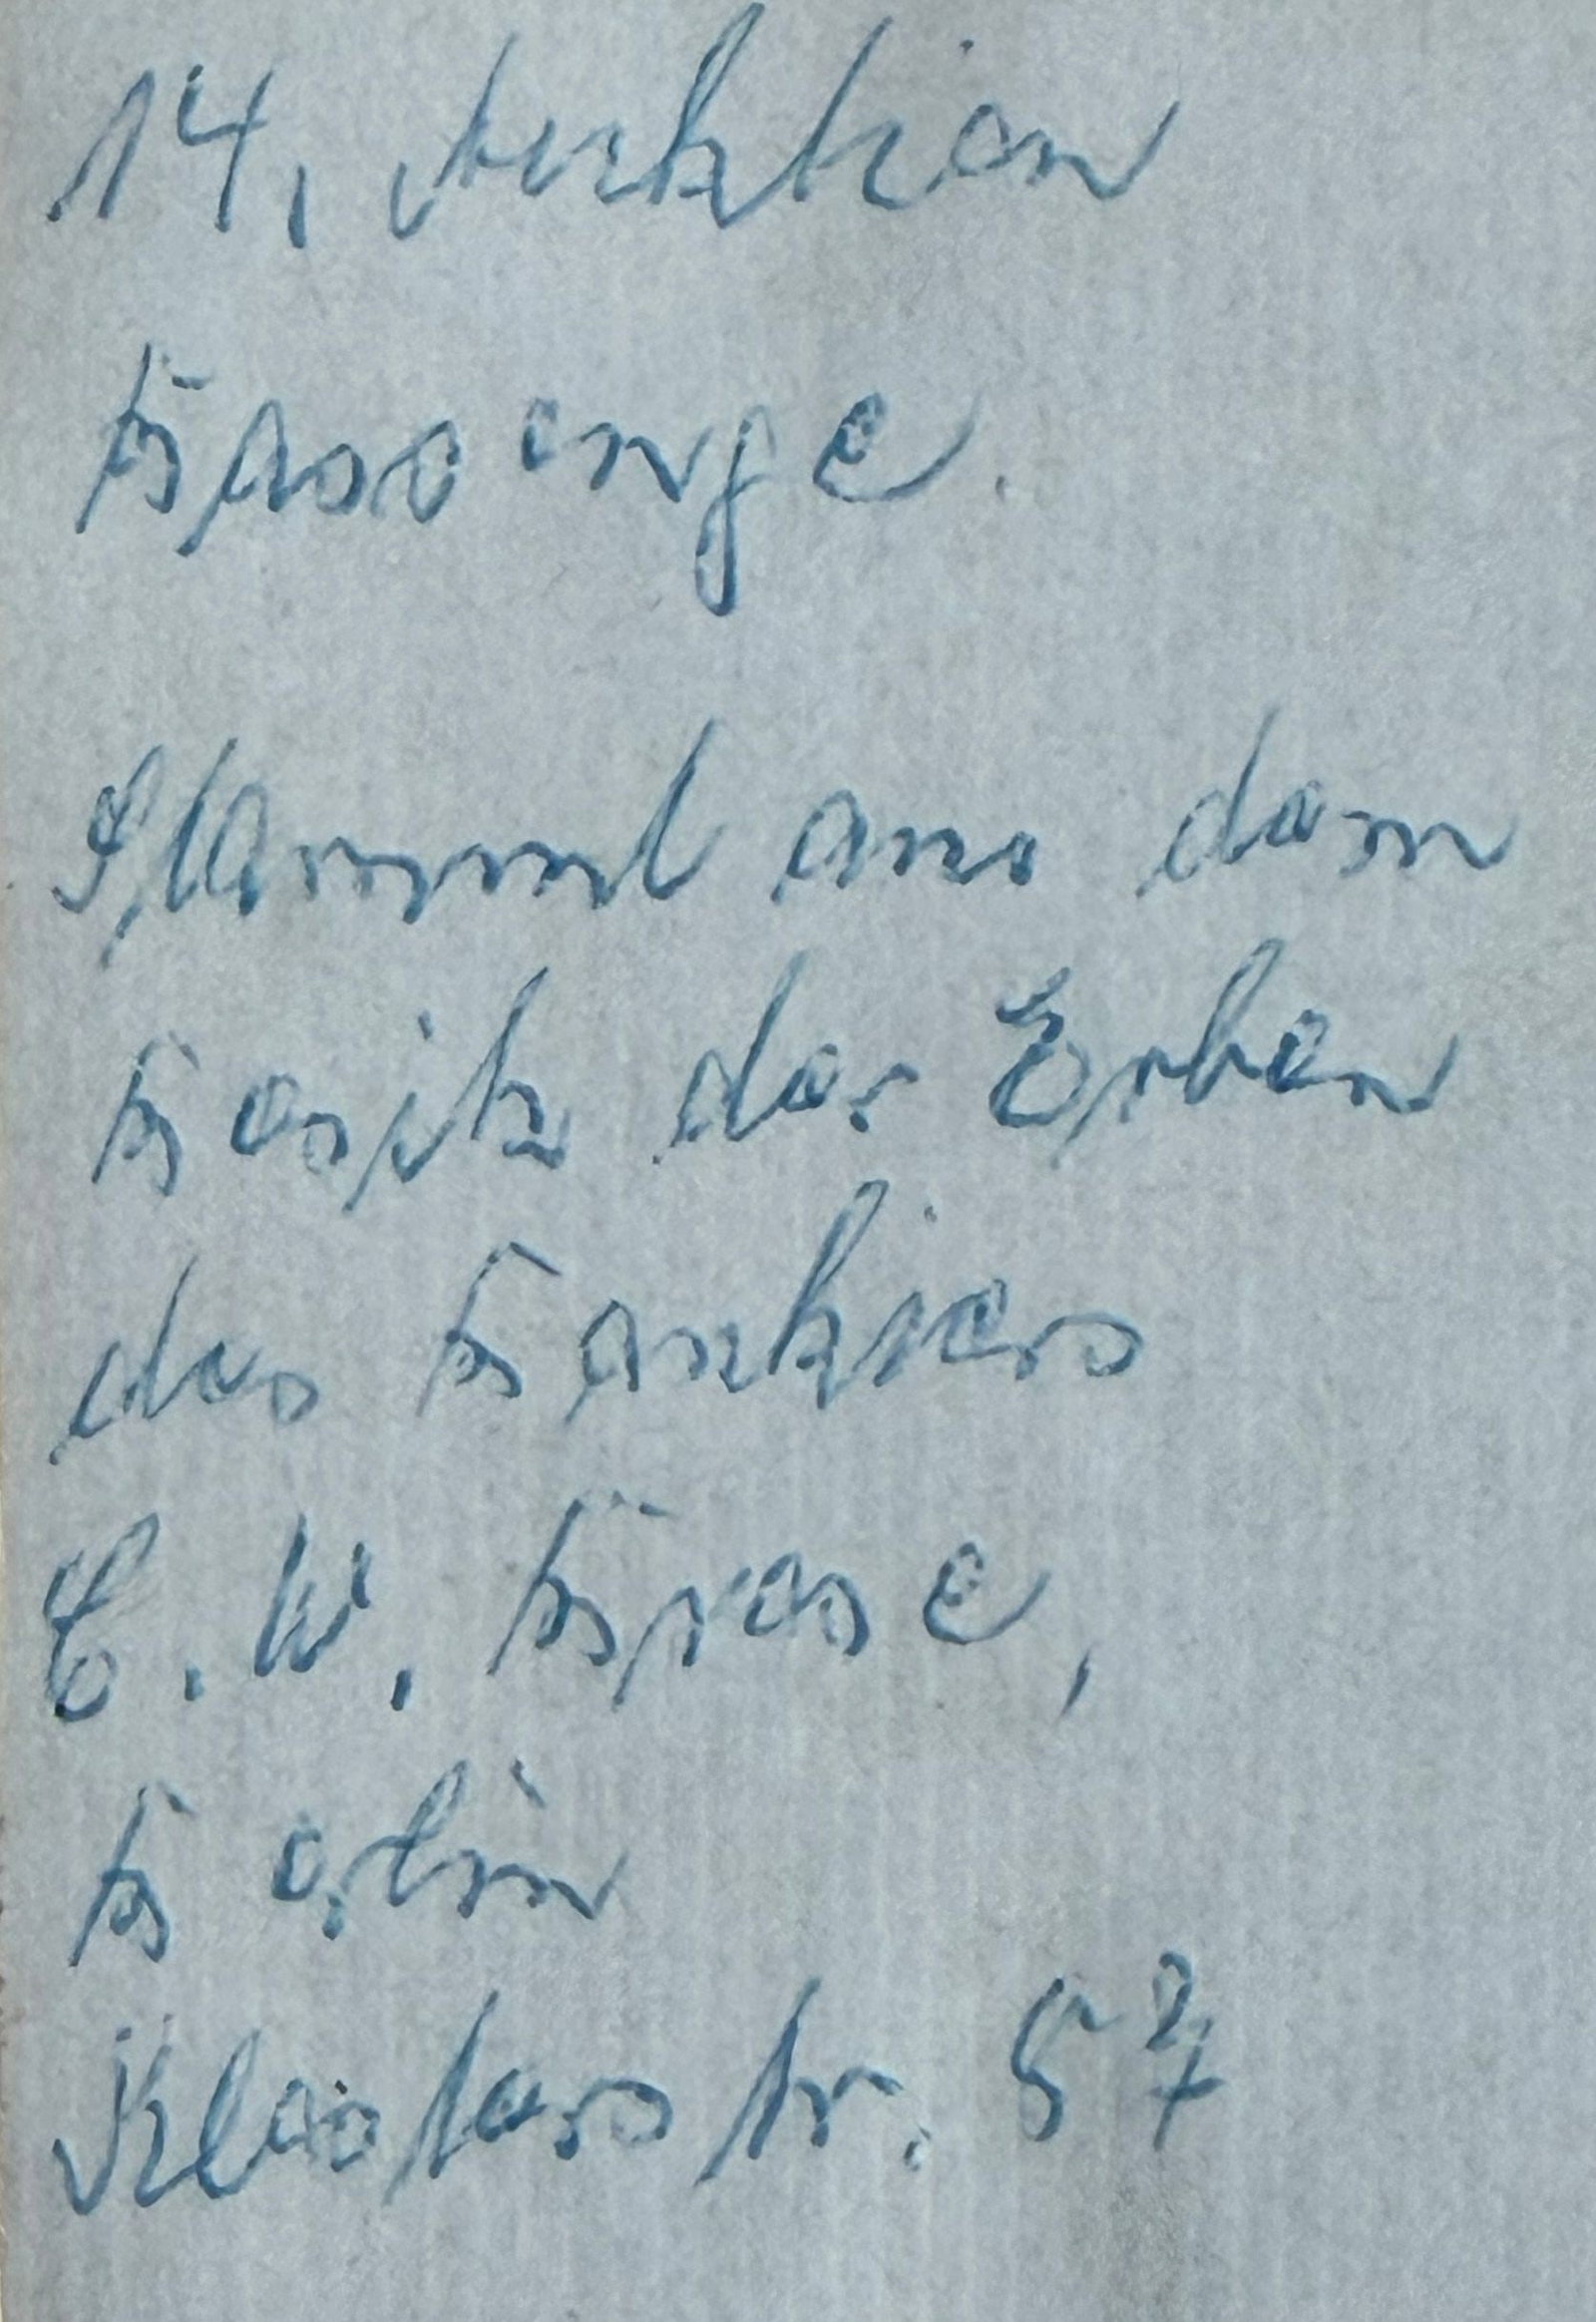 14. Auktion
Bassenge.
Stammt aus dem
Besitz der Erben
des Bankiers
C. W. Brose,
Berlin
Klosterstr. 57